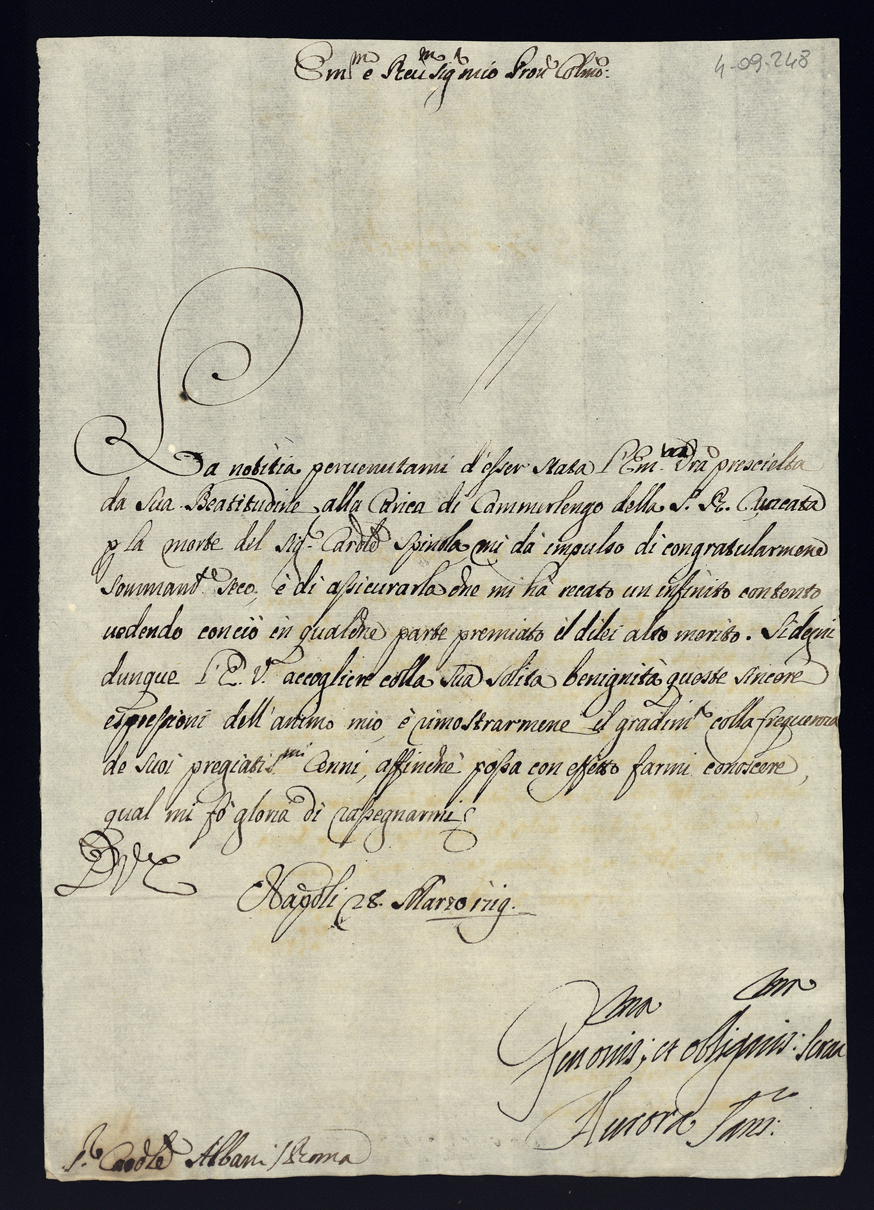 Em.mo e Reu.mo Sig.r mio Prou.e Colmo:
4-09-248
La notitia peruenutami d'esser stata l'Em.za Vra prescielta
da Sua Beatitudine alla Carica di Cammerlengo della S. R. C. uacata
p la morte del Sig.r Cardle Spinola, mi dà impulso di congratularmene
sommam.te seco, è di assicurarla che mi hà recato un infinito contento
uedendo conciò in qualche parte premiato il dilei alto merito. Si degni
dunque l'E. V. accogliere colla sua solita benignità queste sincere
espressioni dell'animo mio, è rimostrarmene il gradim.to colla frequenza
de suoi pregiatis.mi Cenni, affinche possa con effetto farmi conoscere,
qual mi fò gloria di rassegnarmi
D V E
Napoli 28. Marzo 1719.
ma ma
Deuotis; et obligatis: Serua
Aurora San:
S.r Cardle Albani / Roma